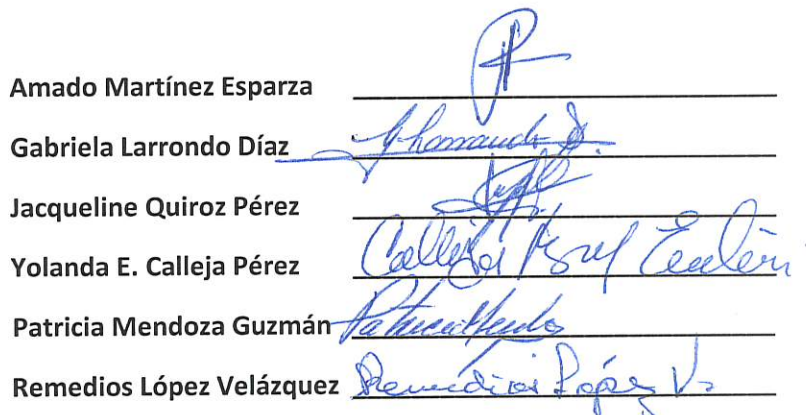 Amado Martínez Esparza
Gabriela Larrondo Díaz
Jacqueline Quiroz Pérez
Yolanda E. Calleja Pérez Calleja
Patricia Mendoza Guzmán
Remedios López Velázquez Remedios López V.